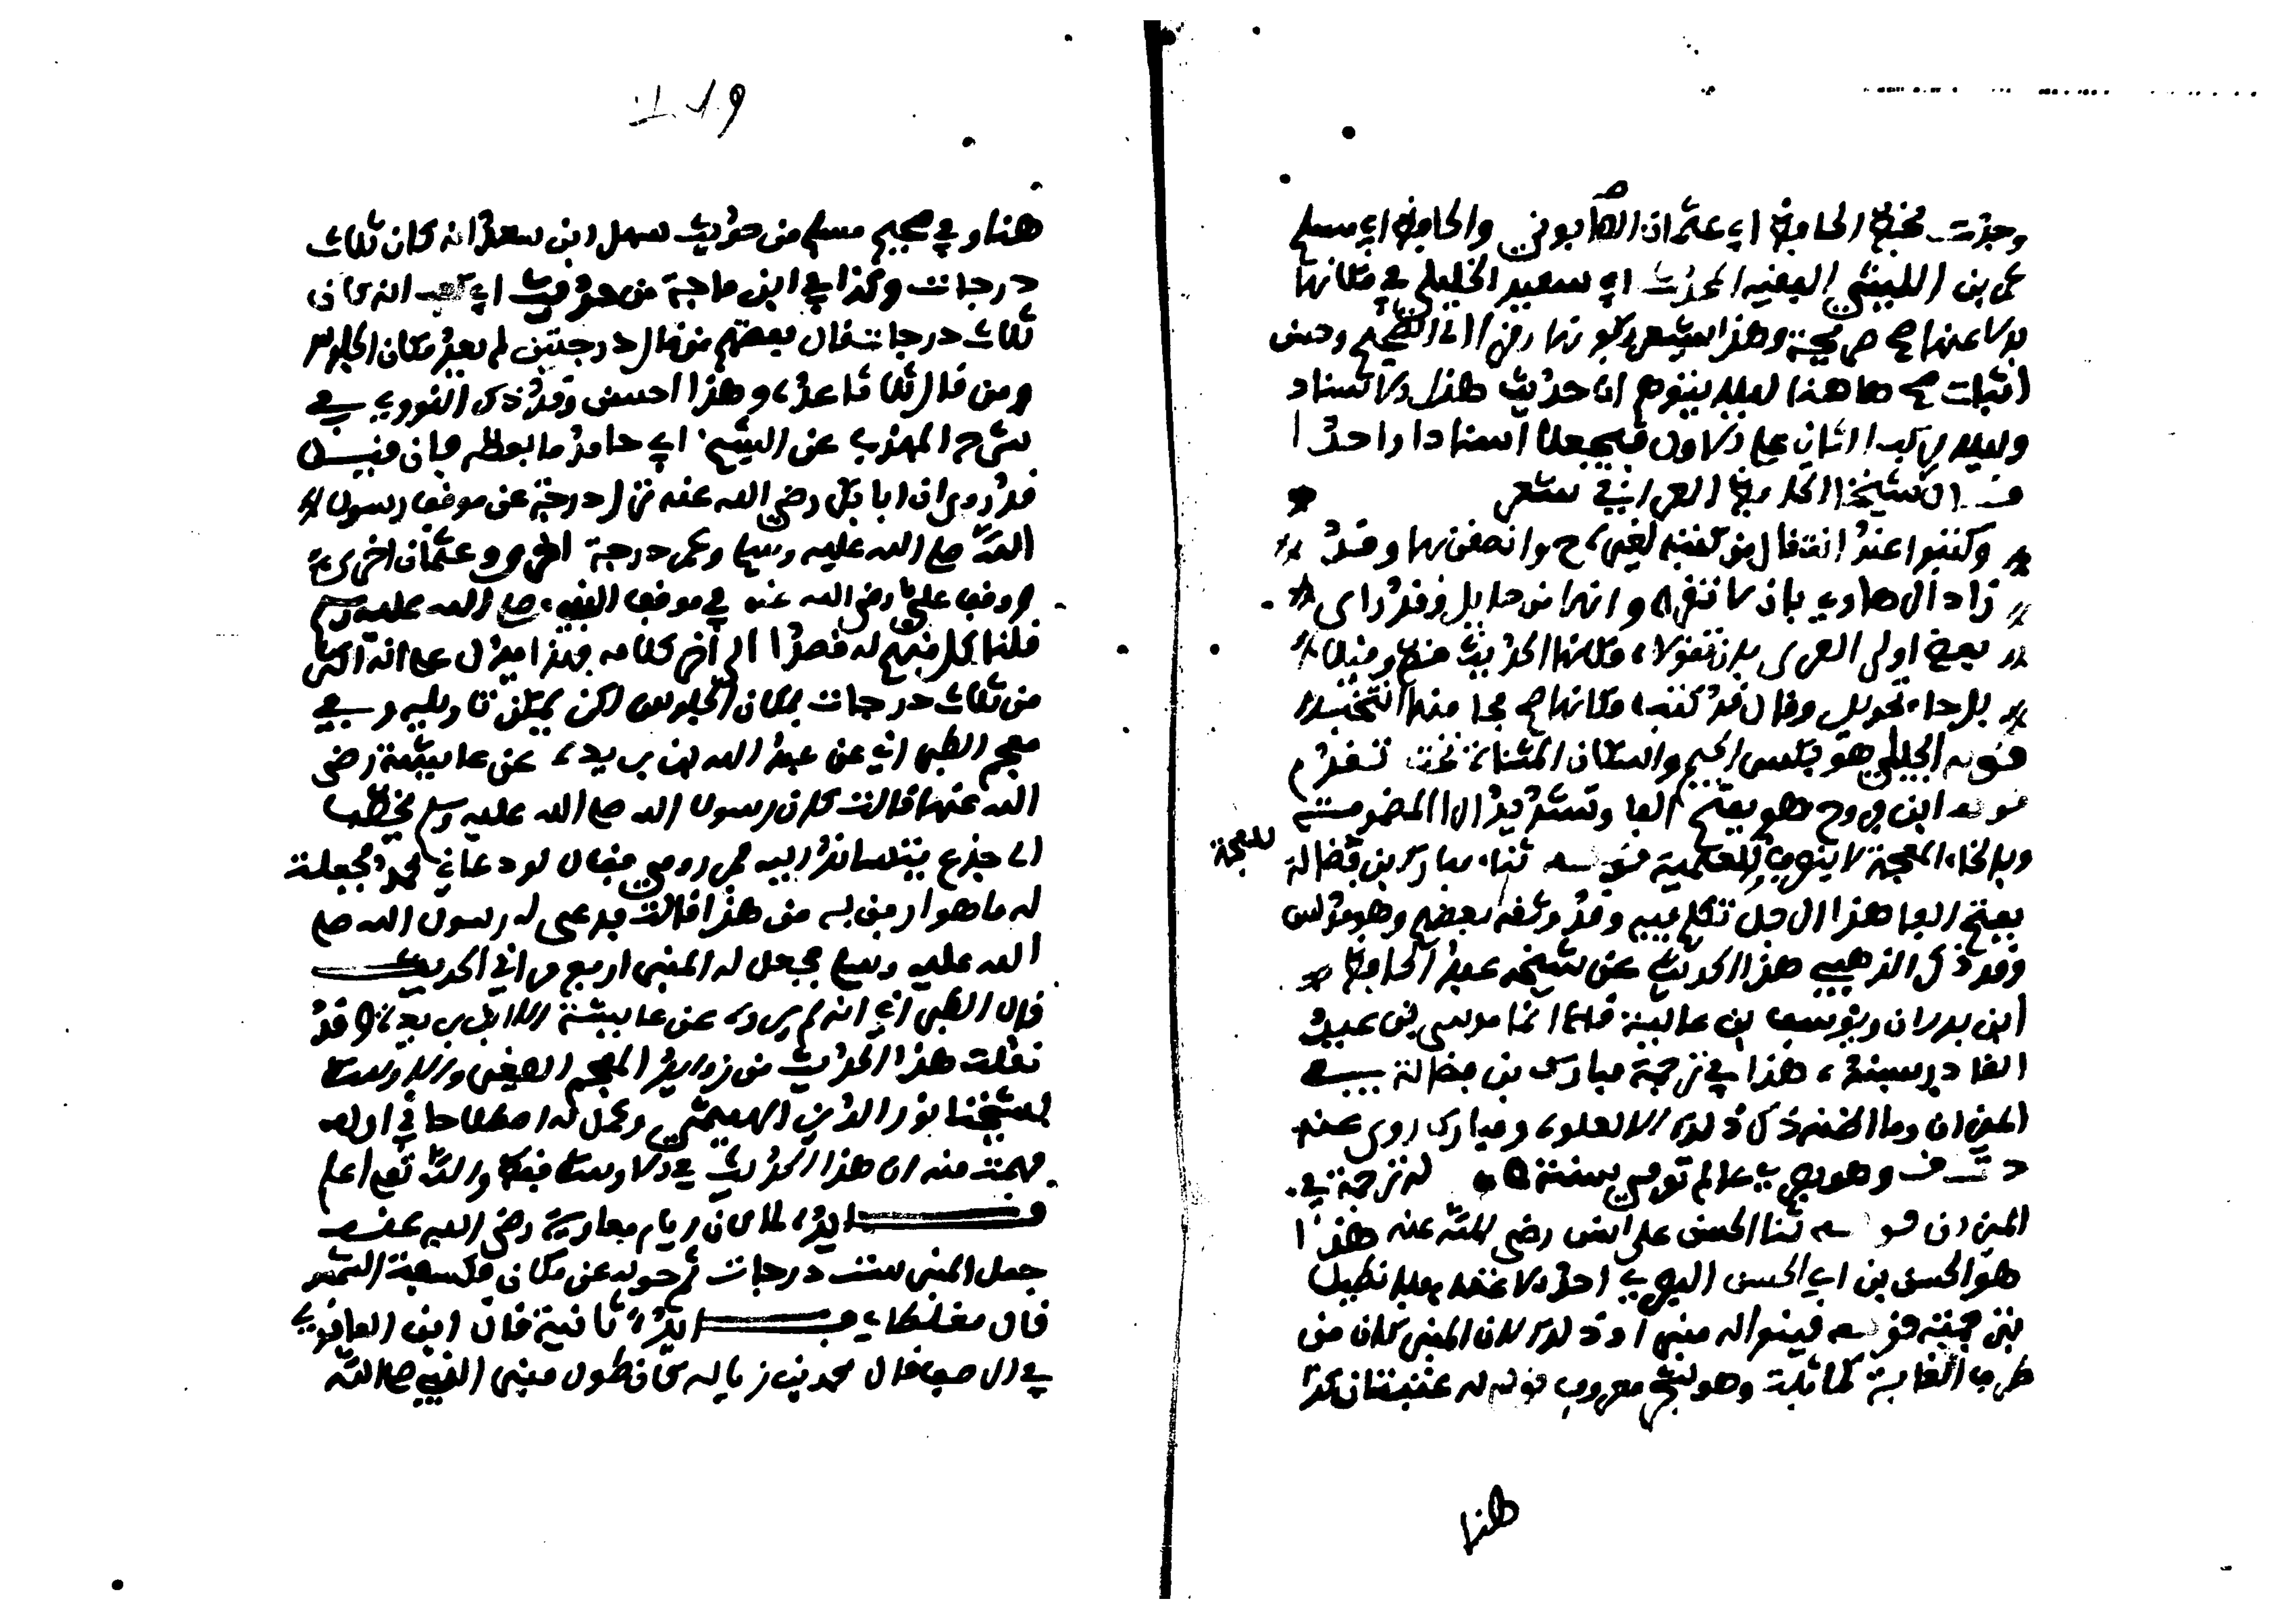 وجدت بخط الحافظ ابي عثمان الصابوني والحافظ ابي مسلم
عمر بن الليثي الفقيه المحدث ابي سعيد الخليلي في مكانها
بدلا عنها صح صريحة وهذا يشعر بكونها رمزا الى الصحيح وحسن
اثبات صح هاهنا ليلا يتوهم ان حديث هذا الاسناد
وليلا يركب الثاني على الاول فيجعلا اسنادا واحدا
قال شيخنا الحافظ العراقي شعر
وكتبوا عند انتقال من سند لغيره ح وانطقن بها وقد
زاد الرهاوي بان لا تقرا وانها من حايل وقد راى
بعض اولي الغرب بان تقولا مكانها الحديث قط وقيلا
بل حاء تحويل وقال قد كتب مكانها صح فحا منها انتخب
قوله الجيلي هو بكسر الجيم واسكان المثناة تحت تقدم
قوله ابن فروخ هو بفتح الفا وتشديد الرا المضمومة
وبالخاء المعجمة لا ينصرف للعلمية للعجمة قوله ثنا مبارك بن فضالة
بفتح الفا هذا الرجل تكلم فيه وقد وثقه بعضهم وهو مدلس
وقد ذكر الذهبي هذا الحديث عن شيخه عبد الحافظ
ابن بدران ويوسف ابن غالية قالا انا موسى بن عبد
القادر بسنده هذا في ترجمة مبارك بن فضالة في
الميزان وما اظنه ذكر ذلك الا لعلوه ومبارك روى عنه
د ت ق وهو بصري عالم توفي سنة له ترجمة في
الميزان قوله ثنا الحسن عن انس رضي الله عنه هذا
هو الحسن بن ابي الحسن البصري احد الاعلام فلا نطيل
بترجمته قوله فبنوا له منبرا ذلك كان المنبر كان من
طرفاء الغابة كما ثبت وهو شجر معروف قوله له عتبتان كذا
هنا
هنا وفي صحيح مسلم من حديث سهل ابن سعد انه كان ثلاث
درجات وكذا في ابن ماجة من حديث ابي كعب انه كان
ثلاث درجات قال بعضهم من قال درجتين لم يعد مكان الجلوس
ومن قال ثلاثا عده وهذا احسن وقد ذكر النووي في
شرح المهذب عن الشيخ ابي حامد ما لفظه فان قيل
قد روي ان ابا بكر رضي الله عنه نزل درجة عن موقف رسول
الله صلى الله عليه وسلم وعمر درجة اخرى وعثمان اخرى
ووقف علي رضي الله عنه في موقف النبي صلى الله عليه وسلم
قلنا كل منهم له قصد الى آخر كلامه فهذا يدل على انه اكثر
من ثلاث درجات بمكان الجلوس لكن يمكن تاويله وفي
معجم الطبراني عن عبد الله بن بريدة عن عايشة رضي
الله عنها قالت كان رسول الله صلى الله عليه وسلم يخطب
الى جذع يتساند اليه فمر رومي فقال لو دعاني محمد فجعلت
له ما هو ارفق به من هذا قالت فدعي له رسول الله صلى
الله عليه وسلم فجعل له المنبر اربع مراقي الحديث
قال الطبراني انه لم يروه عن عايشة الا ابن بريدة وقد
نقلت هذا الحديث من زوايد المعجم الصغير والاوسط
لشيخنا نور الدين الهيثمي وعمل له اصطلاحا في اوله
فهمت منه ان هذا الحديث في الاوسط فقط والله تعالى اعلم
فايدة لما كان ايام معاوية رضي الله عنه
جعل المنبر ست درجات ثم حوله عن مكانه فكسفت الشمس
قال مغلطاي فايدة ثانية قال ابن
في قال محمد بن زبالة كان طول منبر النبي صلى الله